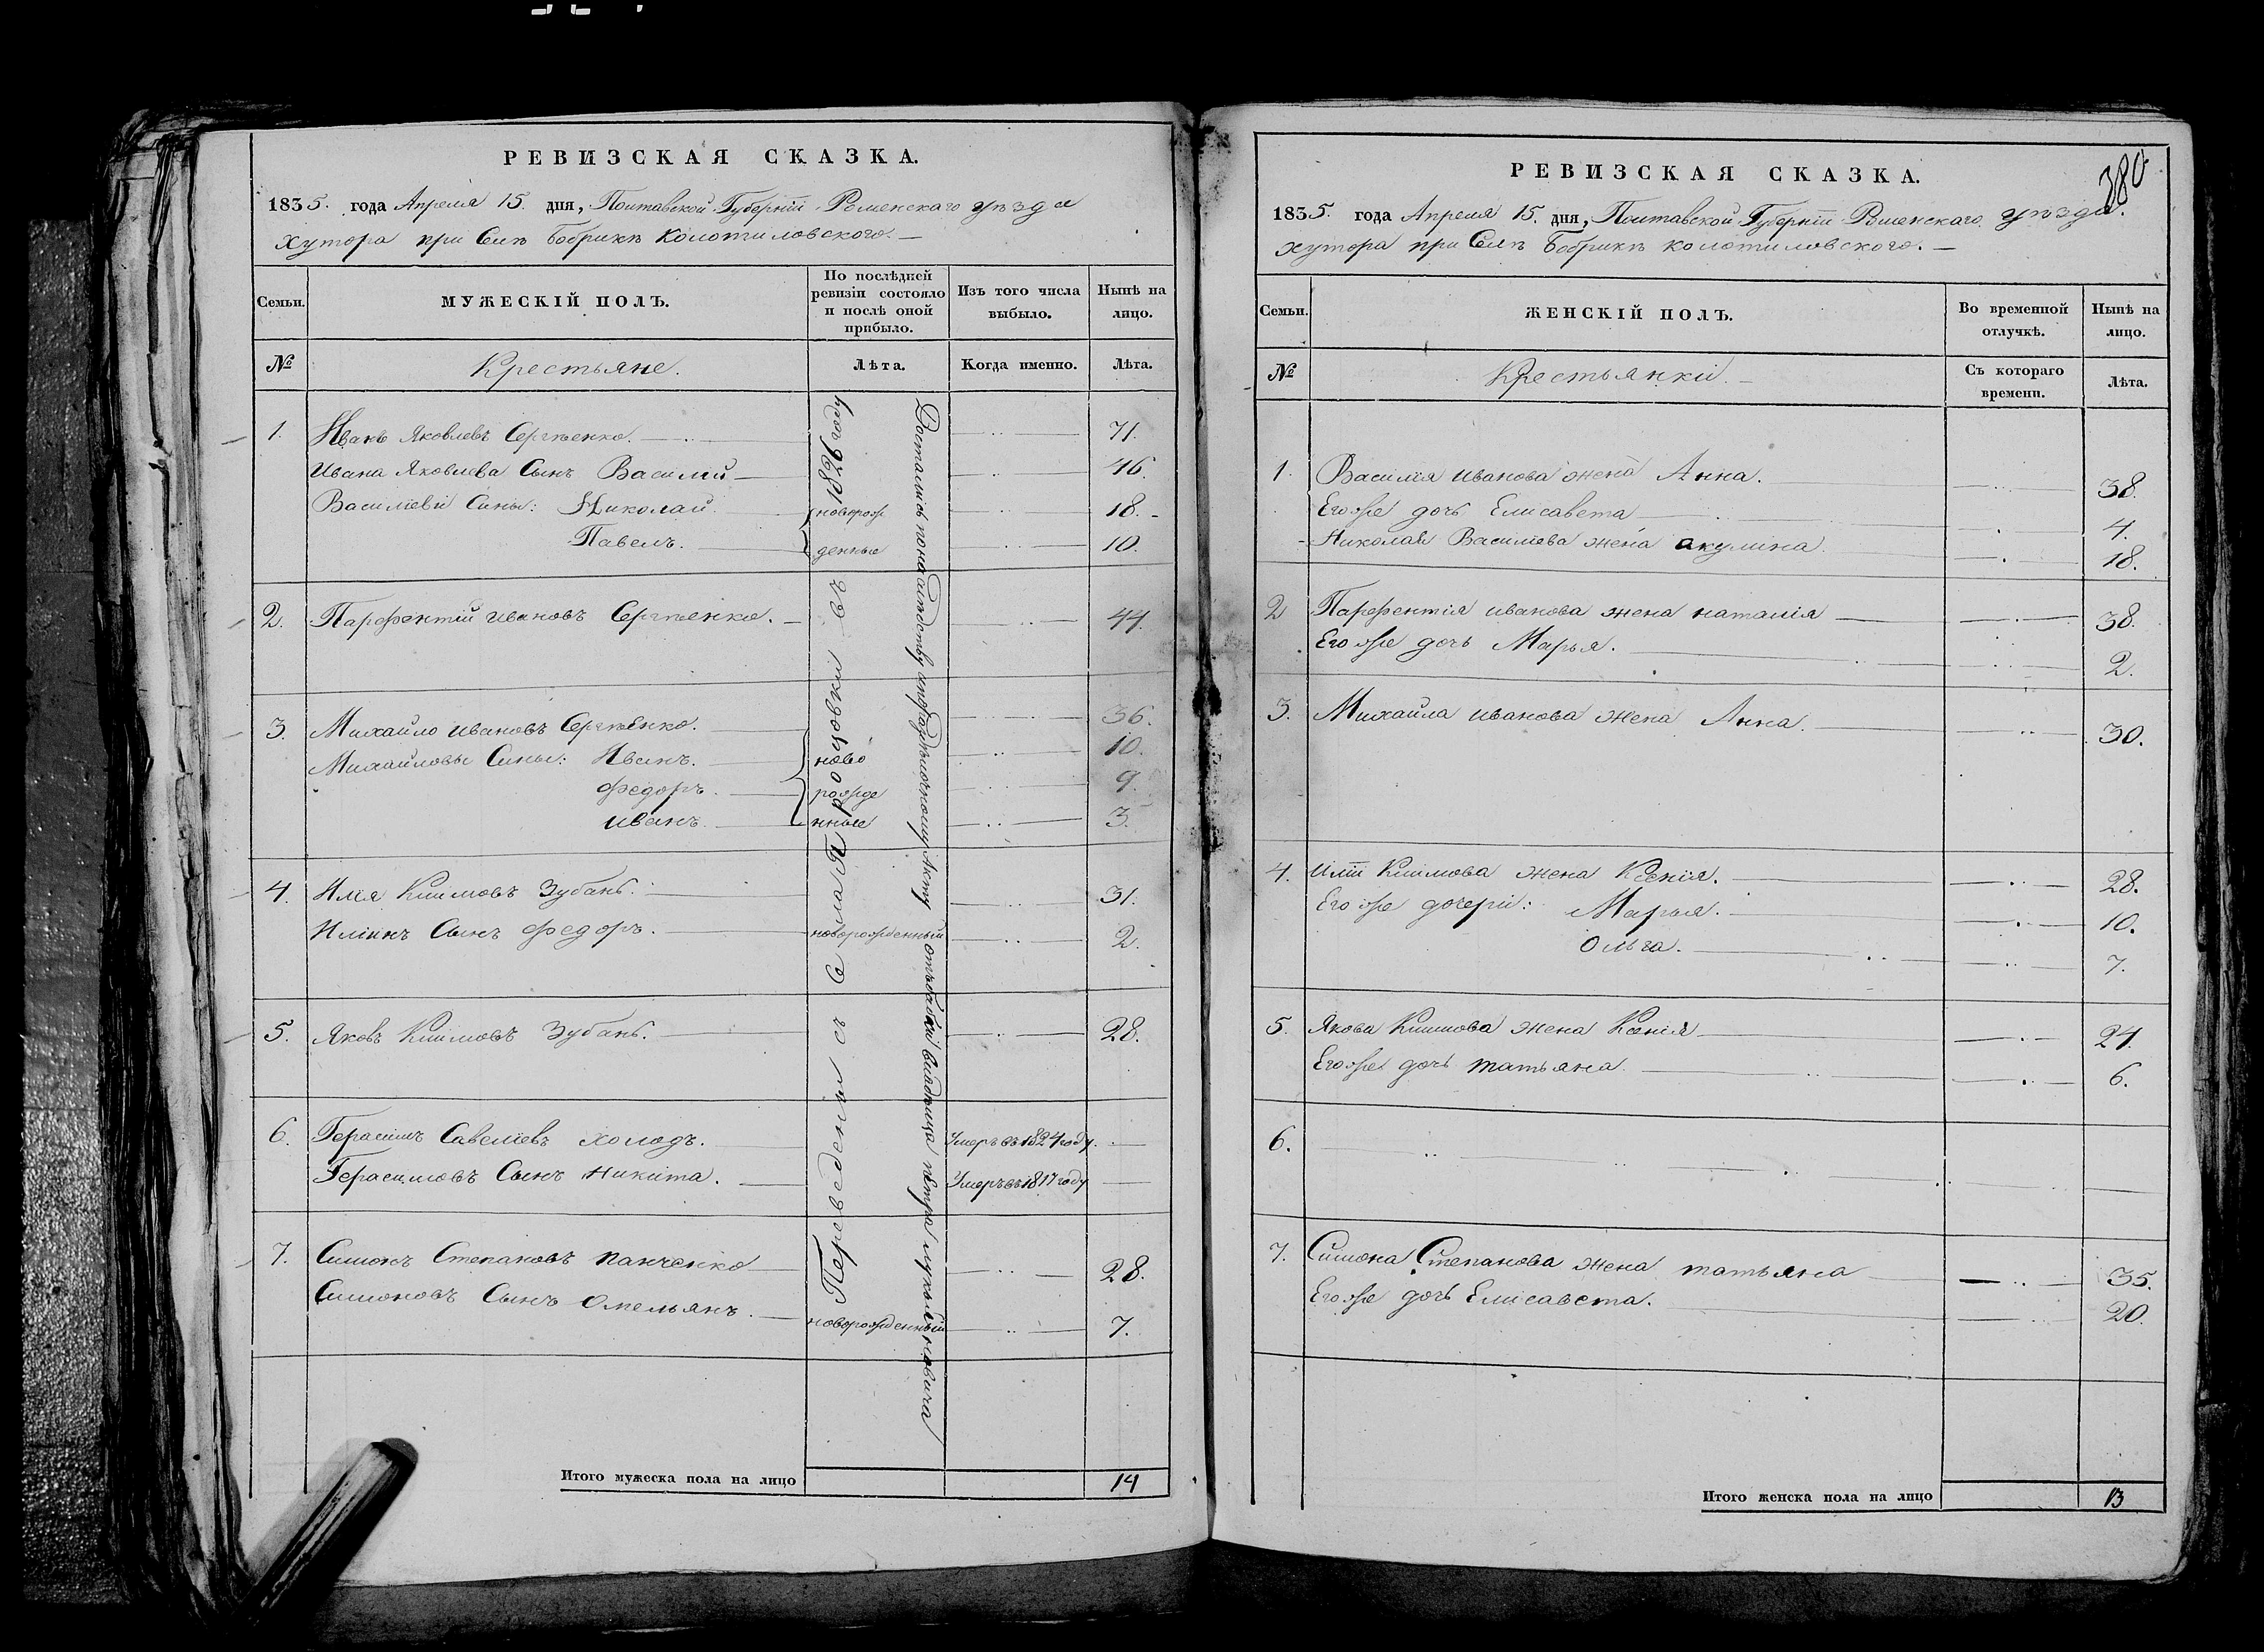 РЕВИЗСКАЯ СКАЗКА.
1835. года Апреля 15. дня, Полтавской Губернїи Роменскаго уѣзда
хутора при Селѣ Бобрикѣ Колотиловского.
Семьи.
МУЖЕСКІЙ ПОЛЪ.
По послѣдней ревизіи состояло и послѣ оной прибыло.
Изъ того числа выбыло.
Нынѣ на лицо.
№
Крестьяне.
Лѣта.
Когда именно.
Лѣта.
1. Иванъ Яковлевъ Сергѣенко. 71.
Ивана Яковлева Сынъ Василий 46.
Василиеви Сины: Николай новорож 18.
Павелъ. денные 10.
2. Парфентий Ивановъ Сергѣенко. 44.
3. Михайло Ивановъ Сергѣенко. 36.
Михайловы Сины: Иванъ. ново 10.
Федоръ. рожде 9.
Иванъ. нные 3.
4. Илїя Климовъ Зубань. 31.
Илїинъ Сынъ Федоръ. новорожденный 2.
5. Яковъ Климовъ Зубань. 28.
6. Герасимъ Савелїевъ Холодъ. Умеръ въ 1824 году.
Герасимовъ Сынъ Никита. Умеръ въ 1817 году
7. Симонъ Степановъ Панченко 28.
Симоновъ Сынъ Омельянъ. новорожденный 7.
Переведены съ Села Процовки въ 1826 году
Достались по наслѣдству отъ бабки Петра
Итого мужеска пола на лицо 14
380.
РЕВИЗСКАЯ СКАЗКА.
1835. года Апреля 15. дня, Полтавской Губернїи Роменскаго уѣзда.
хутора при Селѣ Бобрикѣ колотиловского.
Семьи.
ЖЕНСКІЙ ПОЛЪ.
Во временной отлучкѣ.
Нынѣ на лицо.
№
Крестьянки.
Съ котораго времени.
Лѣта.
1. Василїя Иванова жена Анна. 38.
Егоже дочь Елисавета 4.
Николая Василїева жена Акулина. 18.
2 Парфентїя Иванова жена Наталїя 38.
Егоже дочь Марья. 2.
3. Михайла Иванова жена Анна. 30.
4. Илїи Климова жена Ксенїя. 28.
Егоже дочери: Марья. 10.
Ольга. 7.
5. Якова Климова жена Ксенїя 24.
Егоже дочь Татьяна. 6.
6.
7. Симона Степанова жена Татьяна 35.
Егоже дочь Елисавета. 20.
Итого женска пола на лицо 13